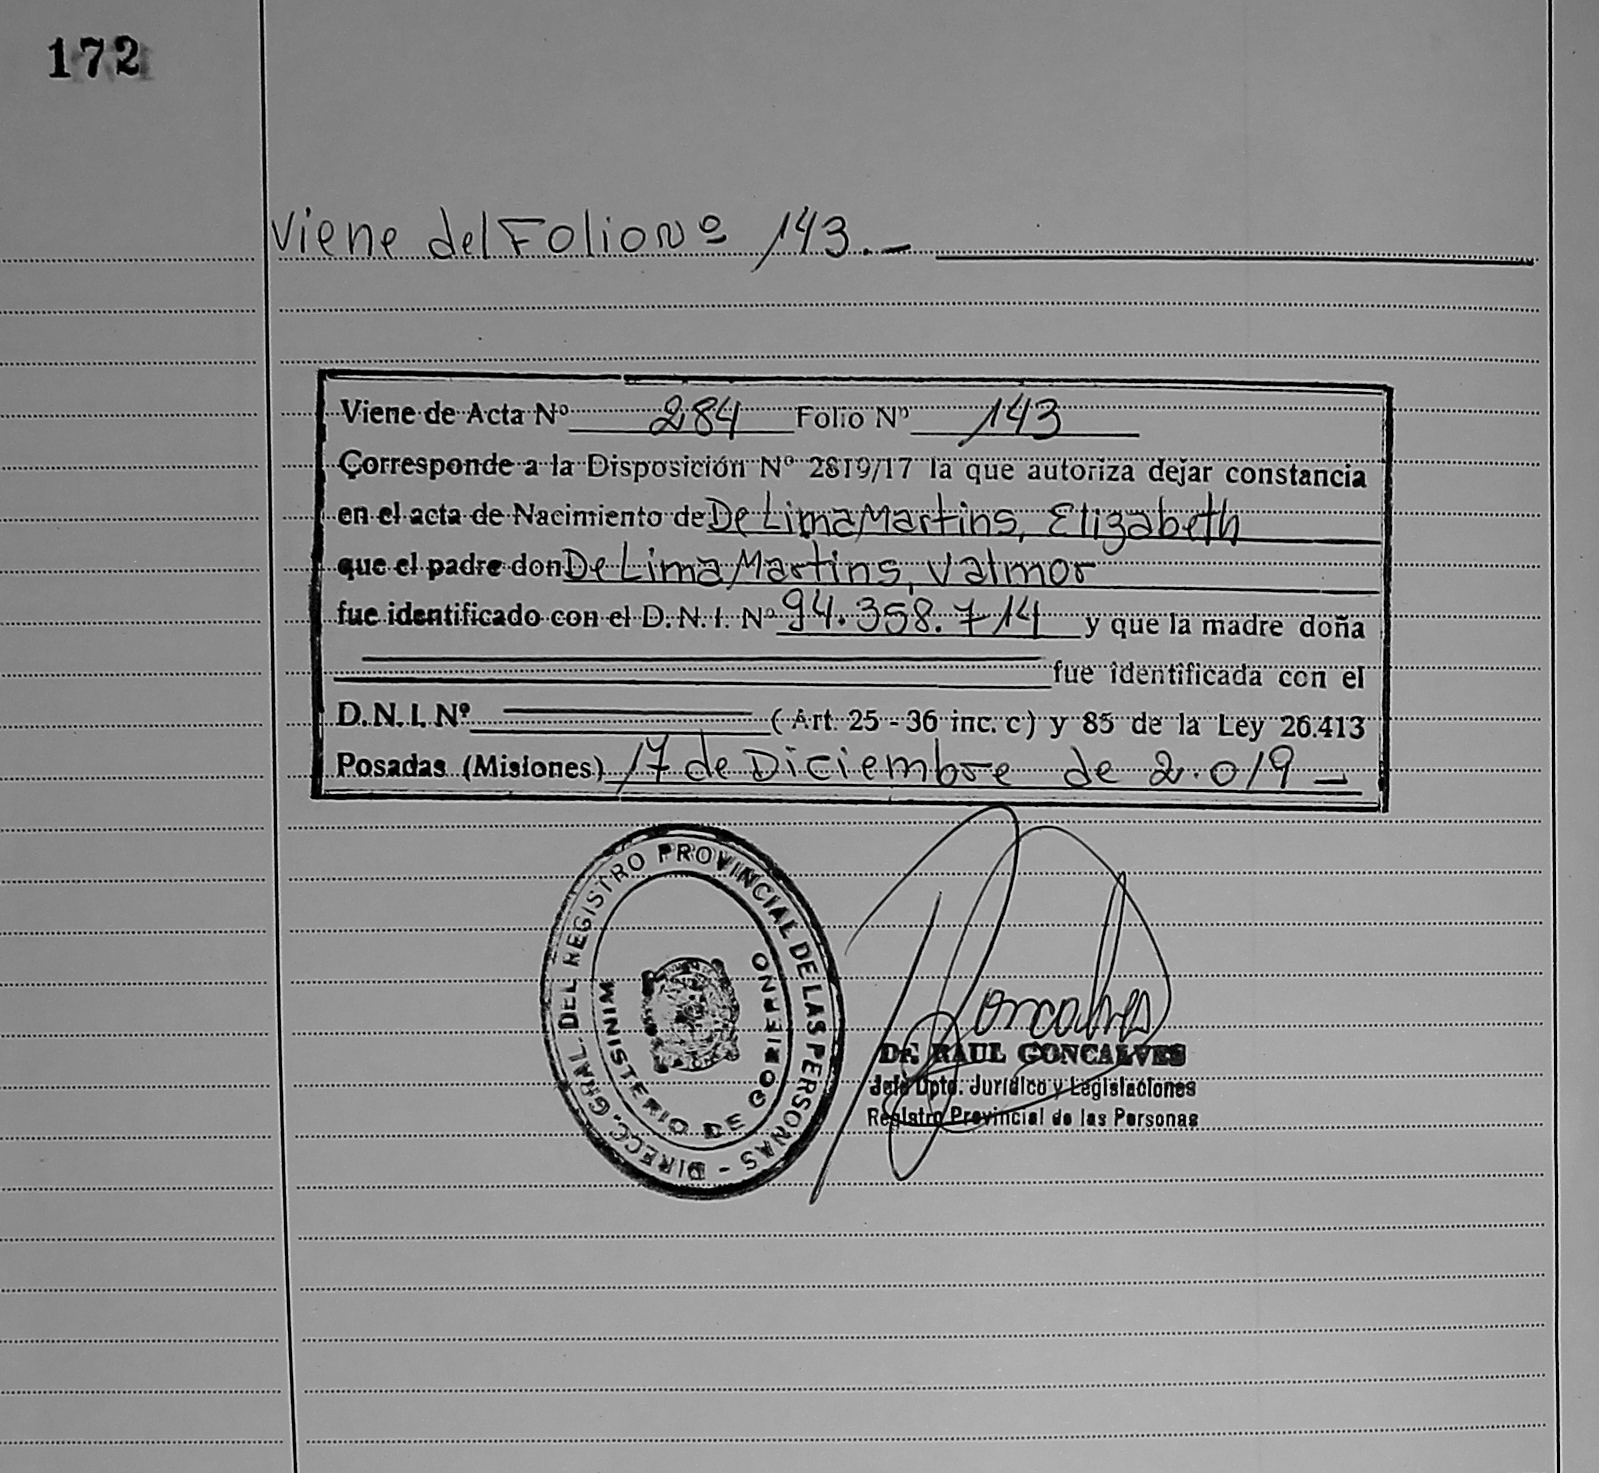 172
Viene del Folio Nº 143.-
Viene de Acta Nº 284 Folio Nº 143
Corresponde a la Disposición Nº 2819/17 la que autoriza dejar constancia
en el acta de Nacimiento de De Lima Martins, Elizabeth
que el padre don De Lima Martins, Valmor
fue identificado con el D. N. I. Nº 94.358.714 y que la madre doña
fue identificada con el
D.N.I. Nº (Art. 25 - 36 inc. c) y 85 de la Ley 26.413
Posadas (Misiones) 17 de Diciembre de 2.019 -
DIRECC. GRAL. DEL REGISTRO PROVINCIAL DE LAS PERSONAS -
MINISTERIO DE GOBIERNO
RAUL GONCALVES
Jefe Dpto. Jurídico y Legislaciones
Registro Provincial de las Personas